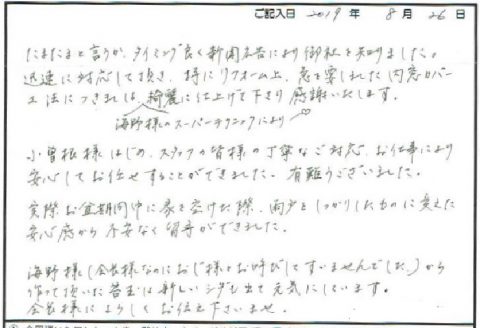 ご記入日 2019 年 8 月 26 日
たまたまと言うか、タイミング良く新聞広告により御社を知りました。
迅速に対応して頂き、特にリフォーム上、急を要しました内窓カバー
工法につきましては、綺麗に仕上げて下さり感謝いたします。
海野様のスーパーテクニックにより
小曽根様はじめ、スタッフの皆様の丁寧なご対応、お仕事により
安心してお任せすることができました。有難うございました。
実際お盆期間中に家を空けた際、雨戸をしっかりしたものに変えた
安心感から不安なく留守ができました。
海野様(会長様なのにおじ様とお呼びしてすいませんでした。)から
作って頂いた苔玉は新しいシダも出て元気にしています。
会長様によろしくお伝え下さいませ。